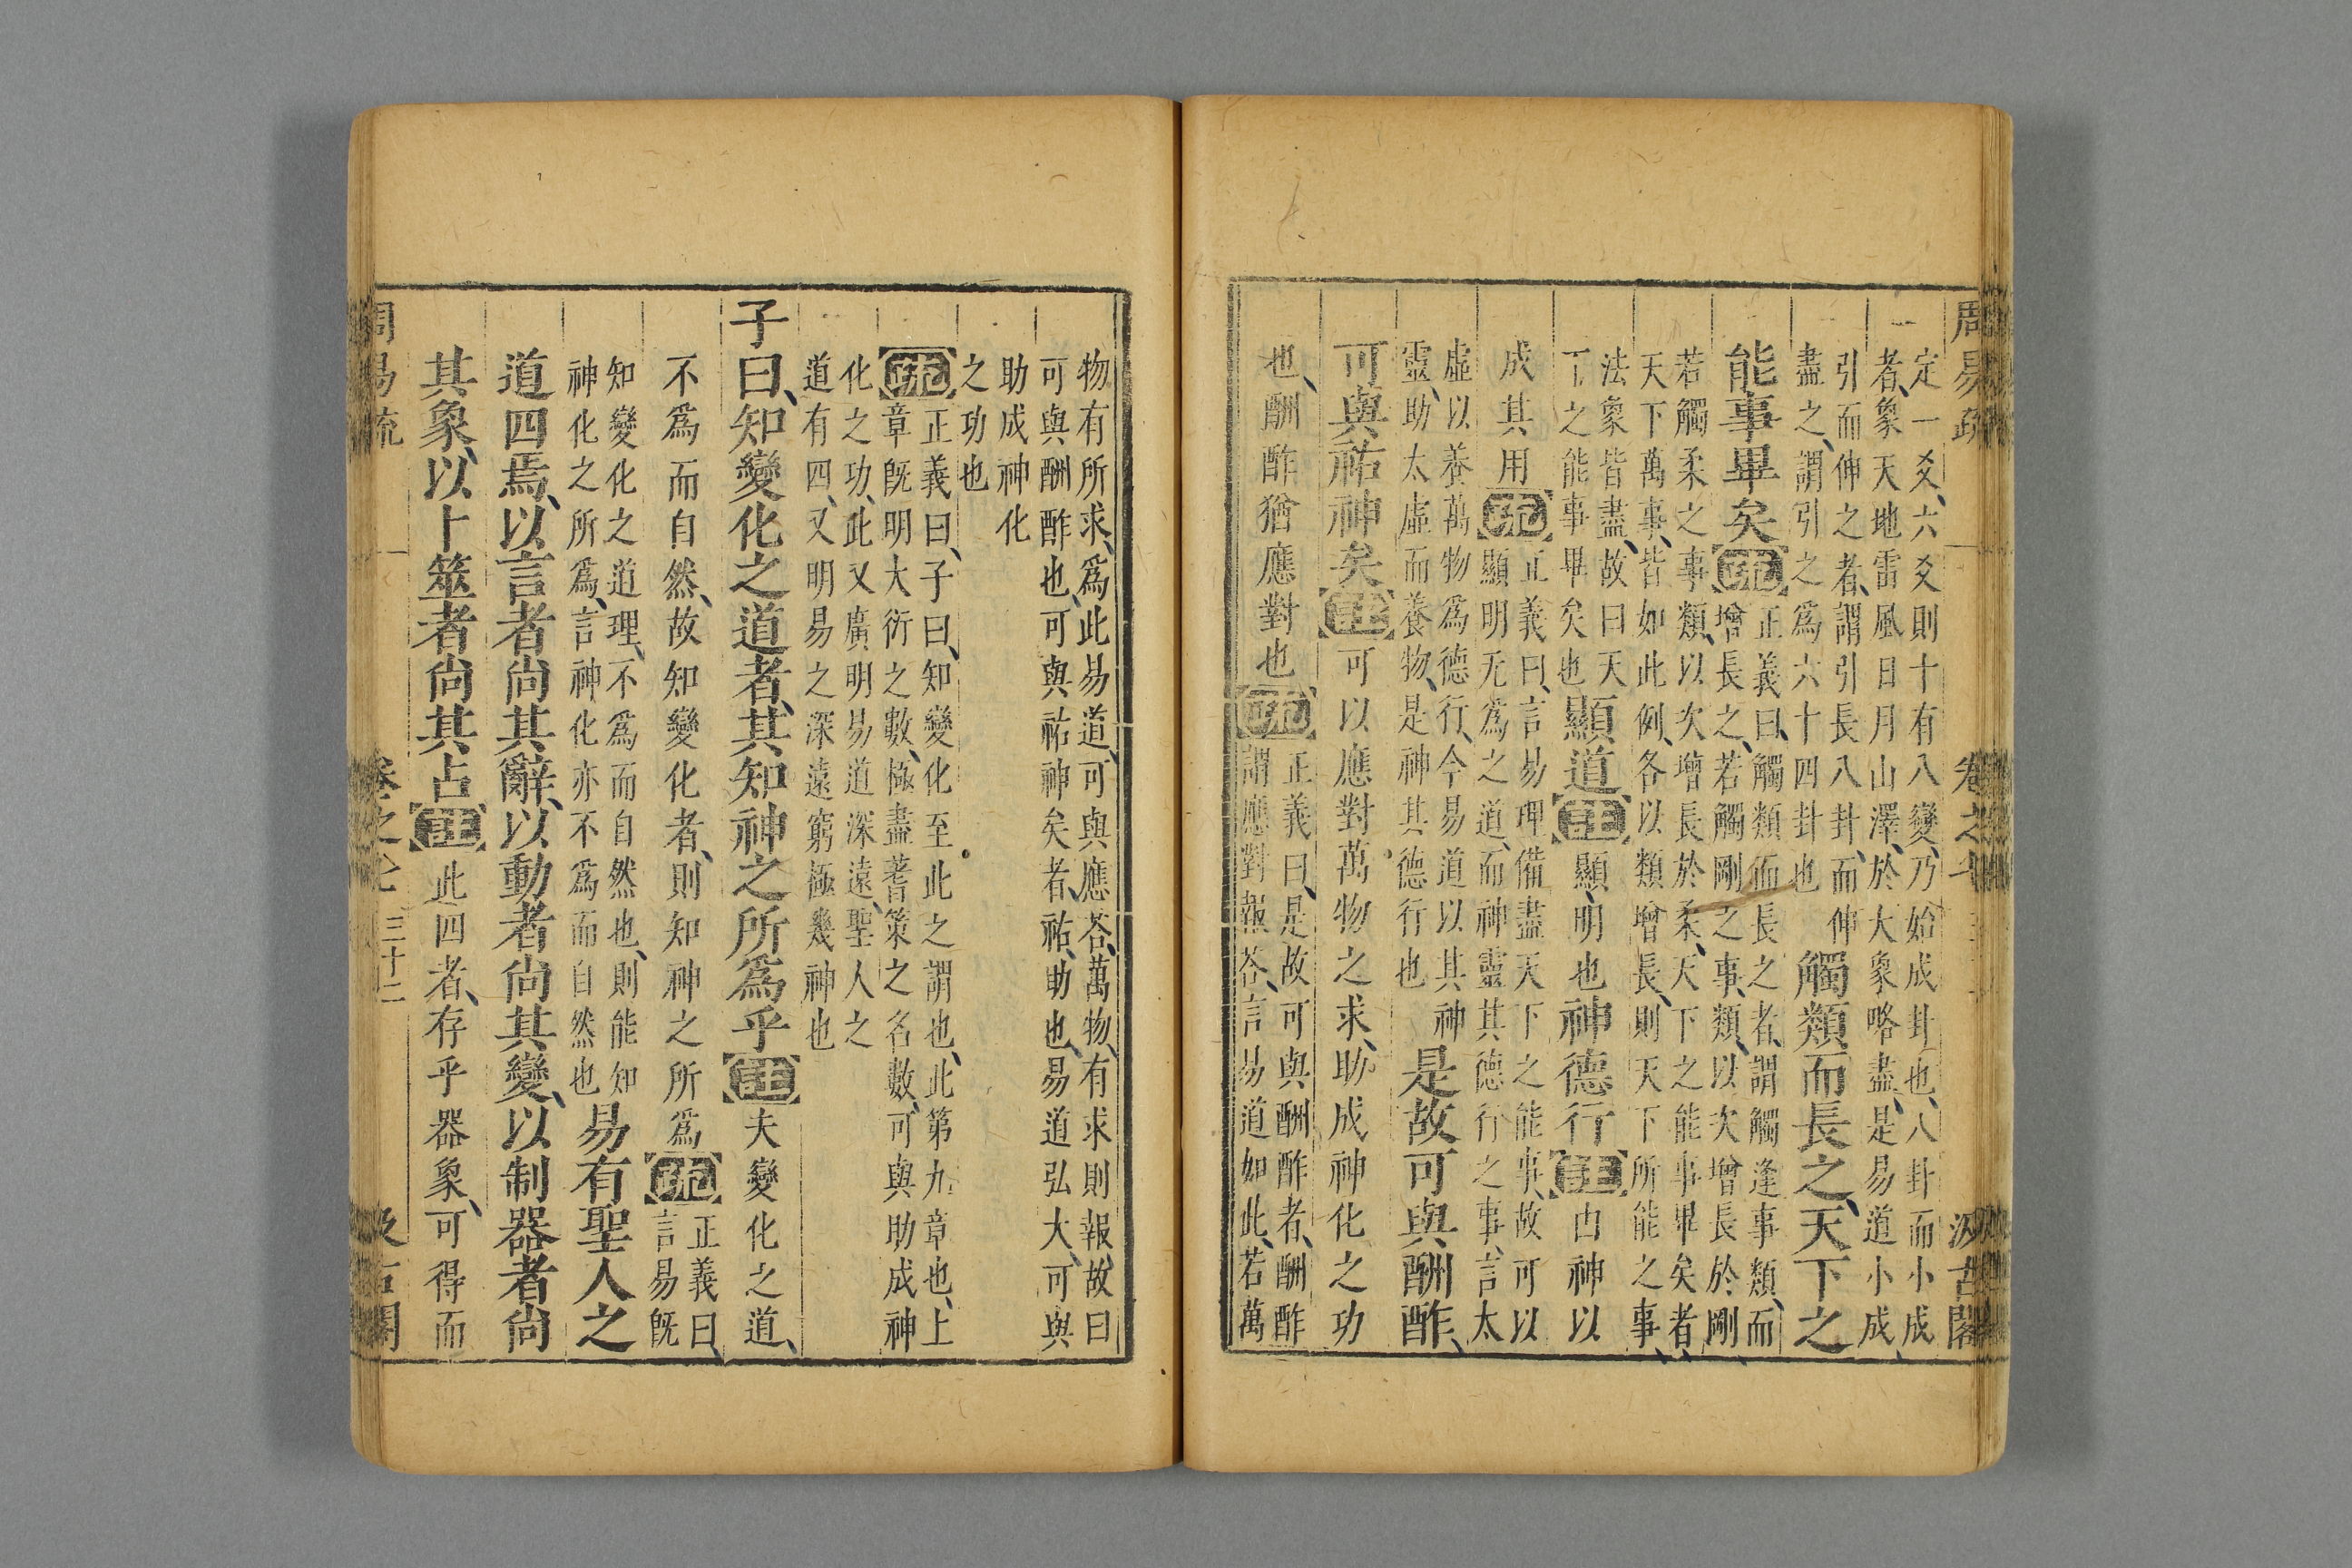 周易疏 卷之七 汲古閣
定一爻、六爻則十有八變、乃始成卦也、八卦而小成
者、象天地雷風日月山澤、於大象略盡、是易道小成、
引而伸之者、謂引長八卦、而伸
盡之、謂引之為六十四卦也
觸類而長之、天下之
能事畢矣疏
正義曰、觸類而長之者、謂觸逢事類、而
增長之、若觸剛之事類、以次增長於剛
若觸柔之事類、以次增長於柔、天下之能事畢矣者、
天下萬事、皆如此例、各以類增長、則天下所能之事、
法象皆盡、故曰天
下之能事畢矣也
顯道註顯、明也神德行註由神以
成其用疏
正義曰、言易理備盡天下之能事、故可以
顯明无爲之道、而神靈其德行之事、言太
虛以養萬物爲德行、今易道以其神
靈、助太虛而養物、是神其德行也
是故可與酬酢、
可與祐神矣註可以應對萬物之求、助成神化之功
也、酬酢猶應對也疏
正義曰、是故可與酬酢者、酬酢
謂應對報荅、言易道如此、若萬
物有所求、爲此易道、可與應荅、萬物、有求則報、故曰
可與酬酢也、可與祐神矣者、祐、助也、易道弘大、可與
助成神化
之功也
疏
正義曰、子曰、知變化至此之謂也、此第九章也、上
章旣明大衍之數、極盡蓍策之名數、可與助成神
化之功、此又廣明易道深遠、聖人之
道有四、又明易之深遠窮極幾神也
子曰、知變化之道者、其知神之所爲乎註夫變化之道、
不爲而自然、故知變化者、則知神之所爲疏
正義曰、
言易旣
知變化之道理、不爲而自然也、則能知
神化之所爲、言神化亦不爲而自然也
易有聖人之
道四焉、以言者尚其辭、以動者尚其變、以制器者尚
其象、以卜筮者尚其占註此四者、存乎器象、可得而
周易疏 卷之七 三十二 汲古閣